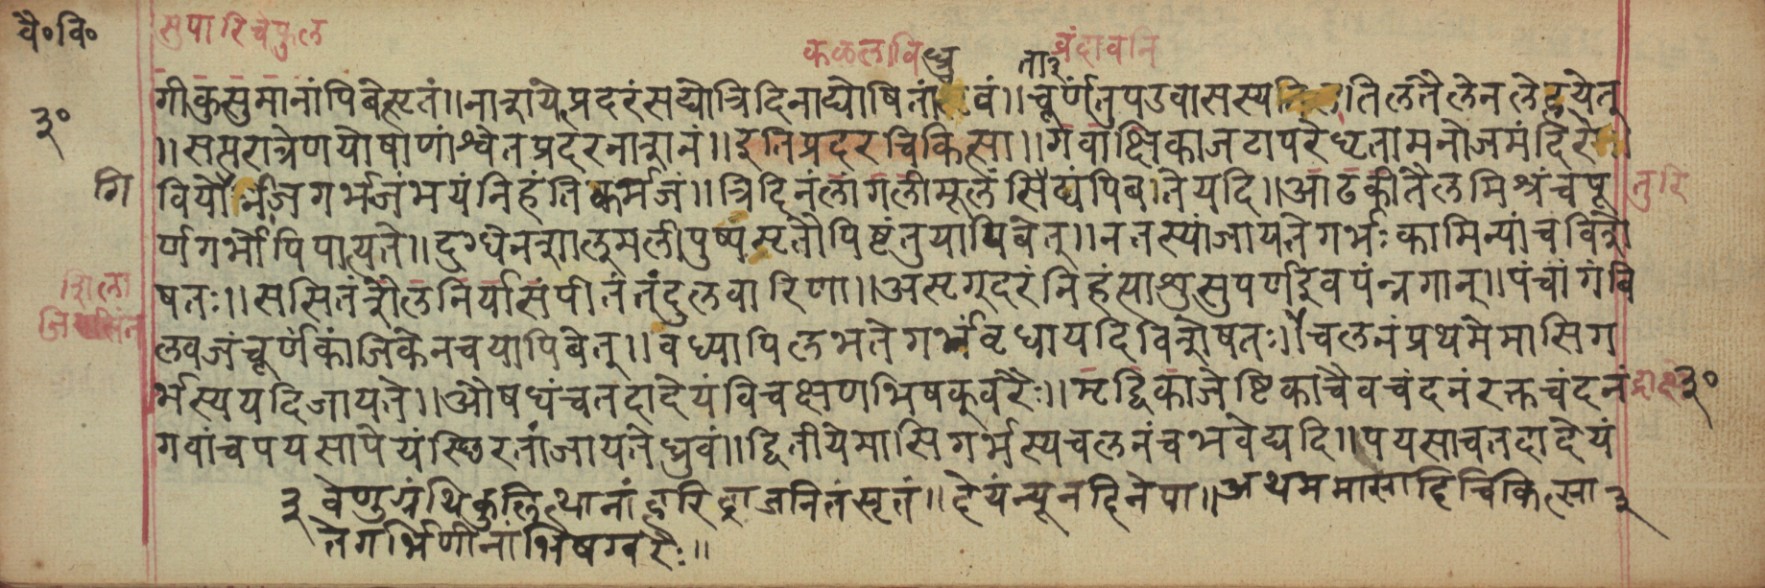 वै॰वि॰
सुपारिचेफुल
कळलाविध्रु
तार
वंदावनि
गीकुसुमानांपिबेत्सृतं।।नाशयेत्प्रदरंसद्योत्रिदिनाद्योषितांध्रुवं।।चूर्णंतुपउवासस्यतिलतैलेनलेहयेत्
३॰
।।सप्तरात्रेणयोषाणांश्वेतप्रदरनाशनं।।इतिप्रदरचिकित्सा।।गवाक्षिकाजटापरेधृतामनोजमंदिरे।।
गि
वियोनिजगर्भजंभयंनिहंतिकर्मजं।।त्रिदिनंलांगलीमूलंसिद्यंपिबतियदि।।आढकीतैलमिश्रंचपू
तुरि
र्णगर्भोपिपात्यते।।दुग्धेनशालुमलीपुष्पंमृतौपिष्टंतुयापिबेत्।।नतस्यांजायतेगर्भःकामिन्यांचविशे
षतः।।ससितंशैलनिर्यासंपीतंतंदुलवारिणा।।असृग्दरंनिहंत्याशुसुपर्णइवपंन्नगान्।।पंचांगंबि
शिला
जित
ल्वजंचूर्णंकांजिकेनचयापिबेत्।।वंध्यापिलभतेगर्भंवृधायदिविशेषतः।।चलनंप्रथमेमासिग
र्भस्ययदिजायते।।औषधंचतदादेयंविचक्षणभिषक्वरैः।।मृद्विकाजेष्टिकाचैवचंदनंरक्तचंदनं
द्राक्षे
३॰
गवांचपयसापेयंस्थिरतांजायतेध्रुवं।।द्वितीयेमासिगर्भस्यचलनंचभवेद्यदि।।पयसाचतदादेयं
३ वेणुग्रंथिकुलित्थानांहरिद्राजनितंसृतं।।देयंन्यूनदिनेपा।।अथममासादिचिकित्सा३
तेगर्भिणीनांभिषग्वरैः।।